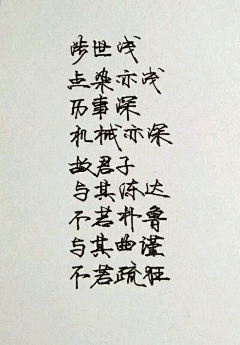 涉世浅
点染亦浅
历事深
机械亦深
故君子
与其练达
不若朴鲁
与其曲谨
不若疏狂